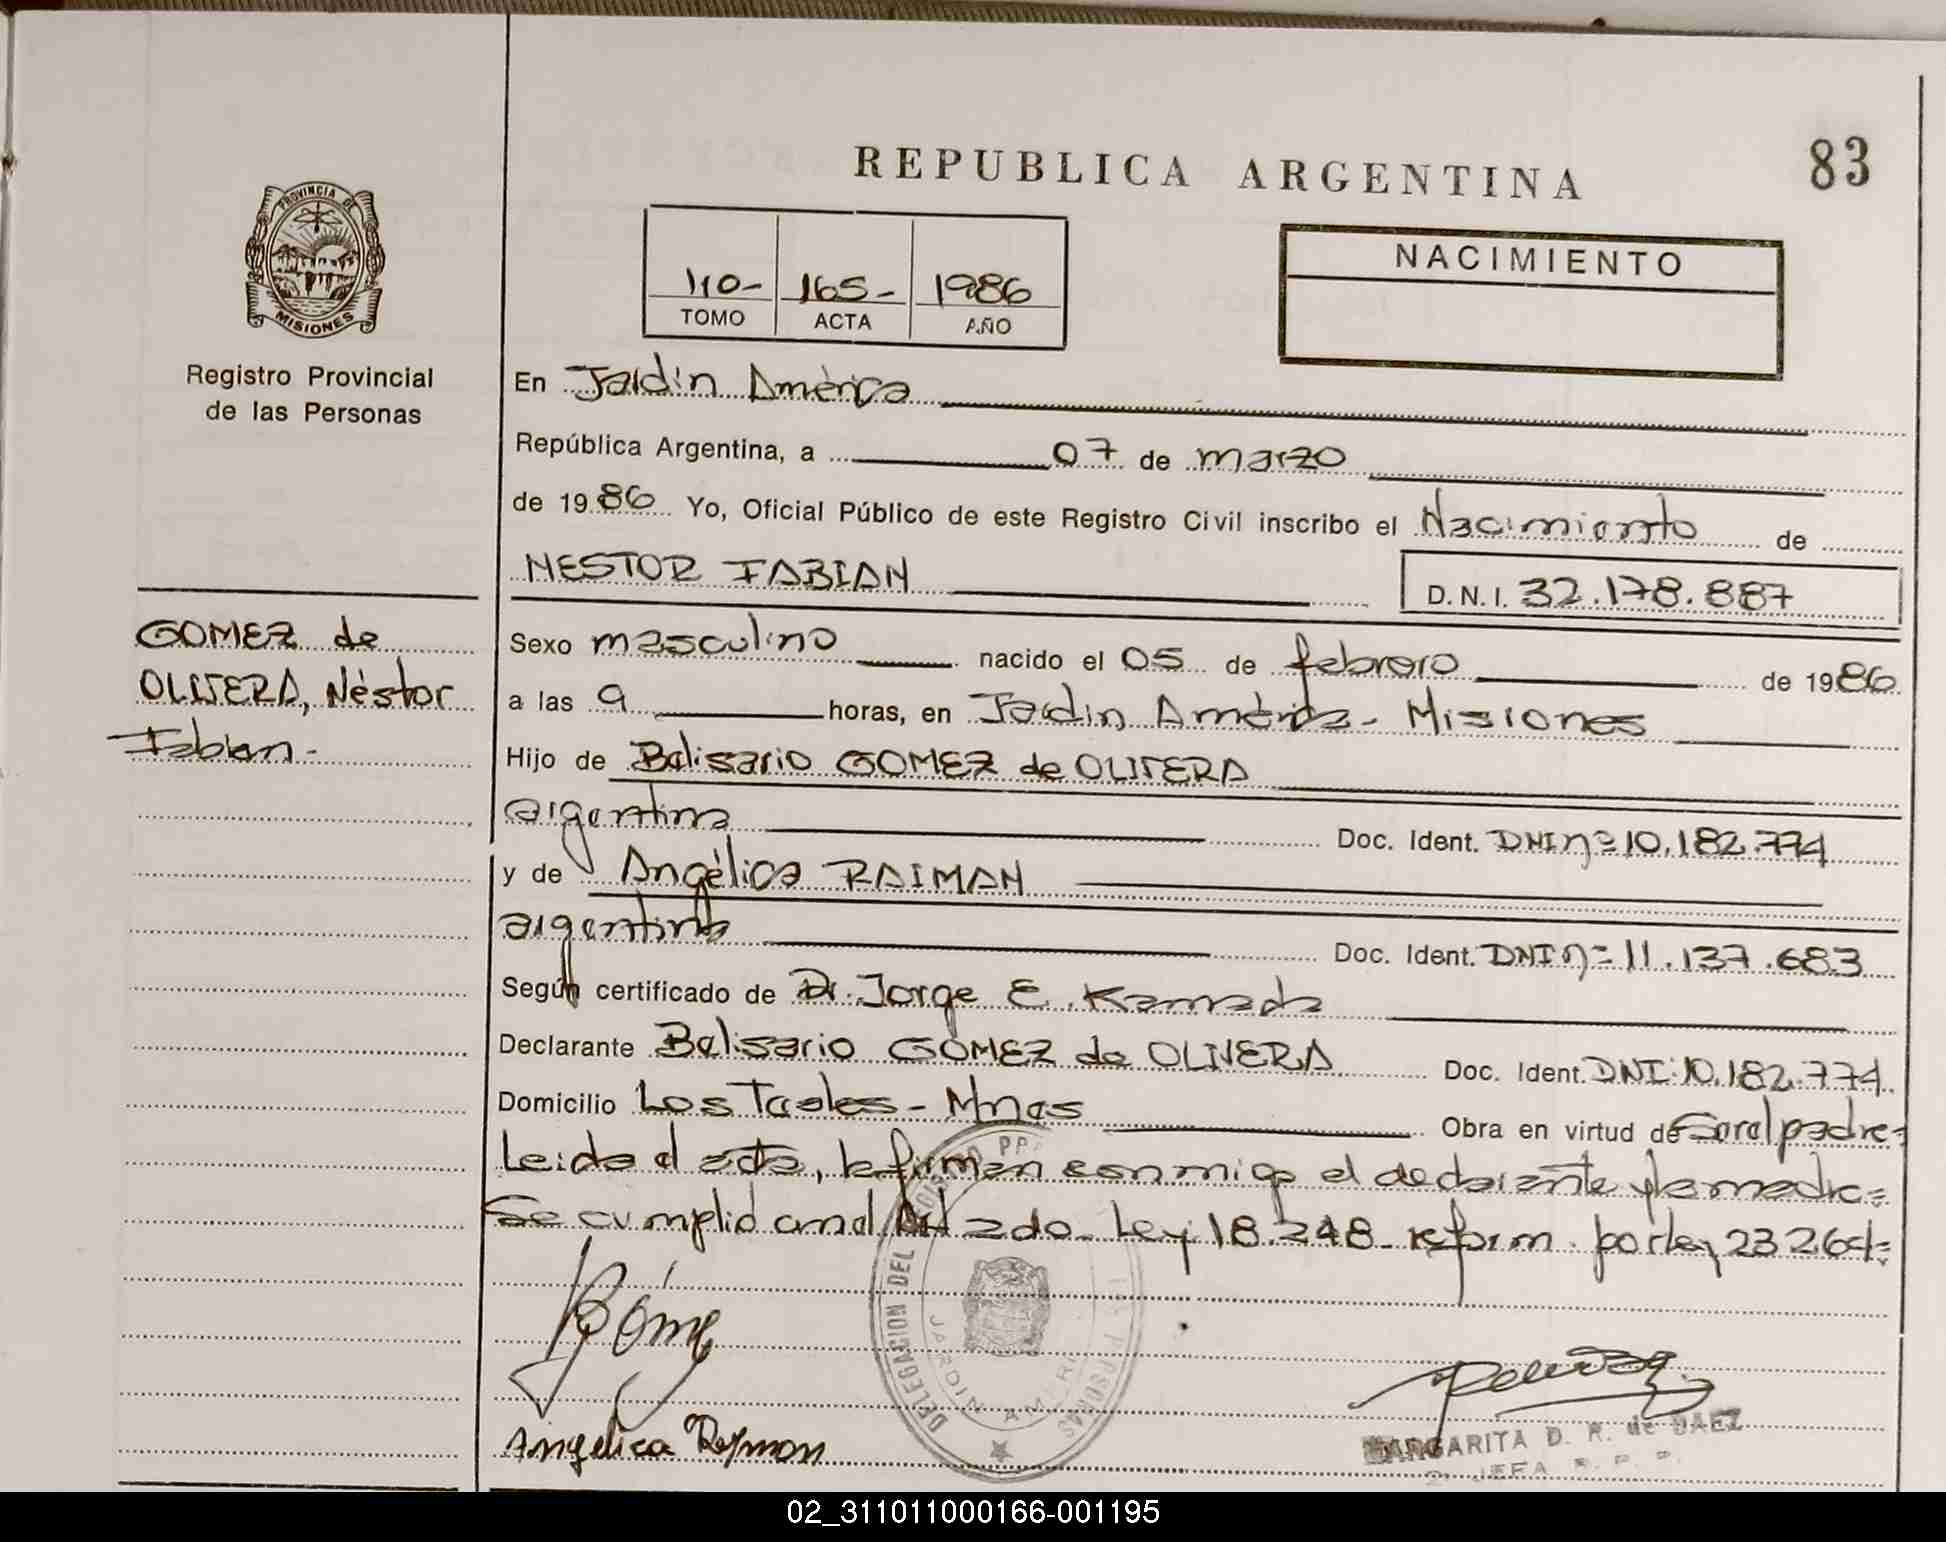 REPUBLICA ARGENTINA
83
PROVINCIA DE
MISIONES
Registro Provincial
de las Personas
110- 165- 1986
TOMO ACTA AÑO
NACIMIENTO
En Jardín América
República Argentina, a 07 de marzo
de 1986 Yo, Oficial Público de este Registro Civil inscribo el Nacimiento de
NESTOR FABIAN
D.N.I. 32.178.887
GOMEZ de
OLIVERA, Néstor
Fabian-
Sexo masculino nacido el 05 de febrero de 1986
a las 9 horas, en Jardín América - Misiones
Hijo de Belisario GOMEZ de OLIVERA
argentina Doc. Ident. DNI nº 10.182.774
y de Angélica RAIMAN
argentina Doc. Ident. DNI nº 11.137.683
Según certificado de Dr. Jorge E. Kamada
Declarante Belisario GOMEZ de OLIVERA Doc. Ident. DNI: 10.182.774
Domicilio Los Teales - Mnes Obra en virtud de Ser el padre=
Leida el acta, la firman conmigo el declarante y la madre=
Se cumplió con el Art 2do- Ley 18.248- reform. por ley 23264=
Góme
Angelica Reymon
DELEGACION DEL REGISTRO PP DE LAS PERSONAS
JARDIN AMERI
MARGARITA D. R. de BAEZ
2º JEFA R. P. P.
02_311011000166-001195